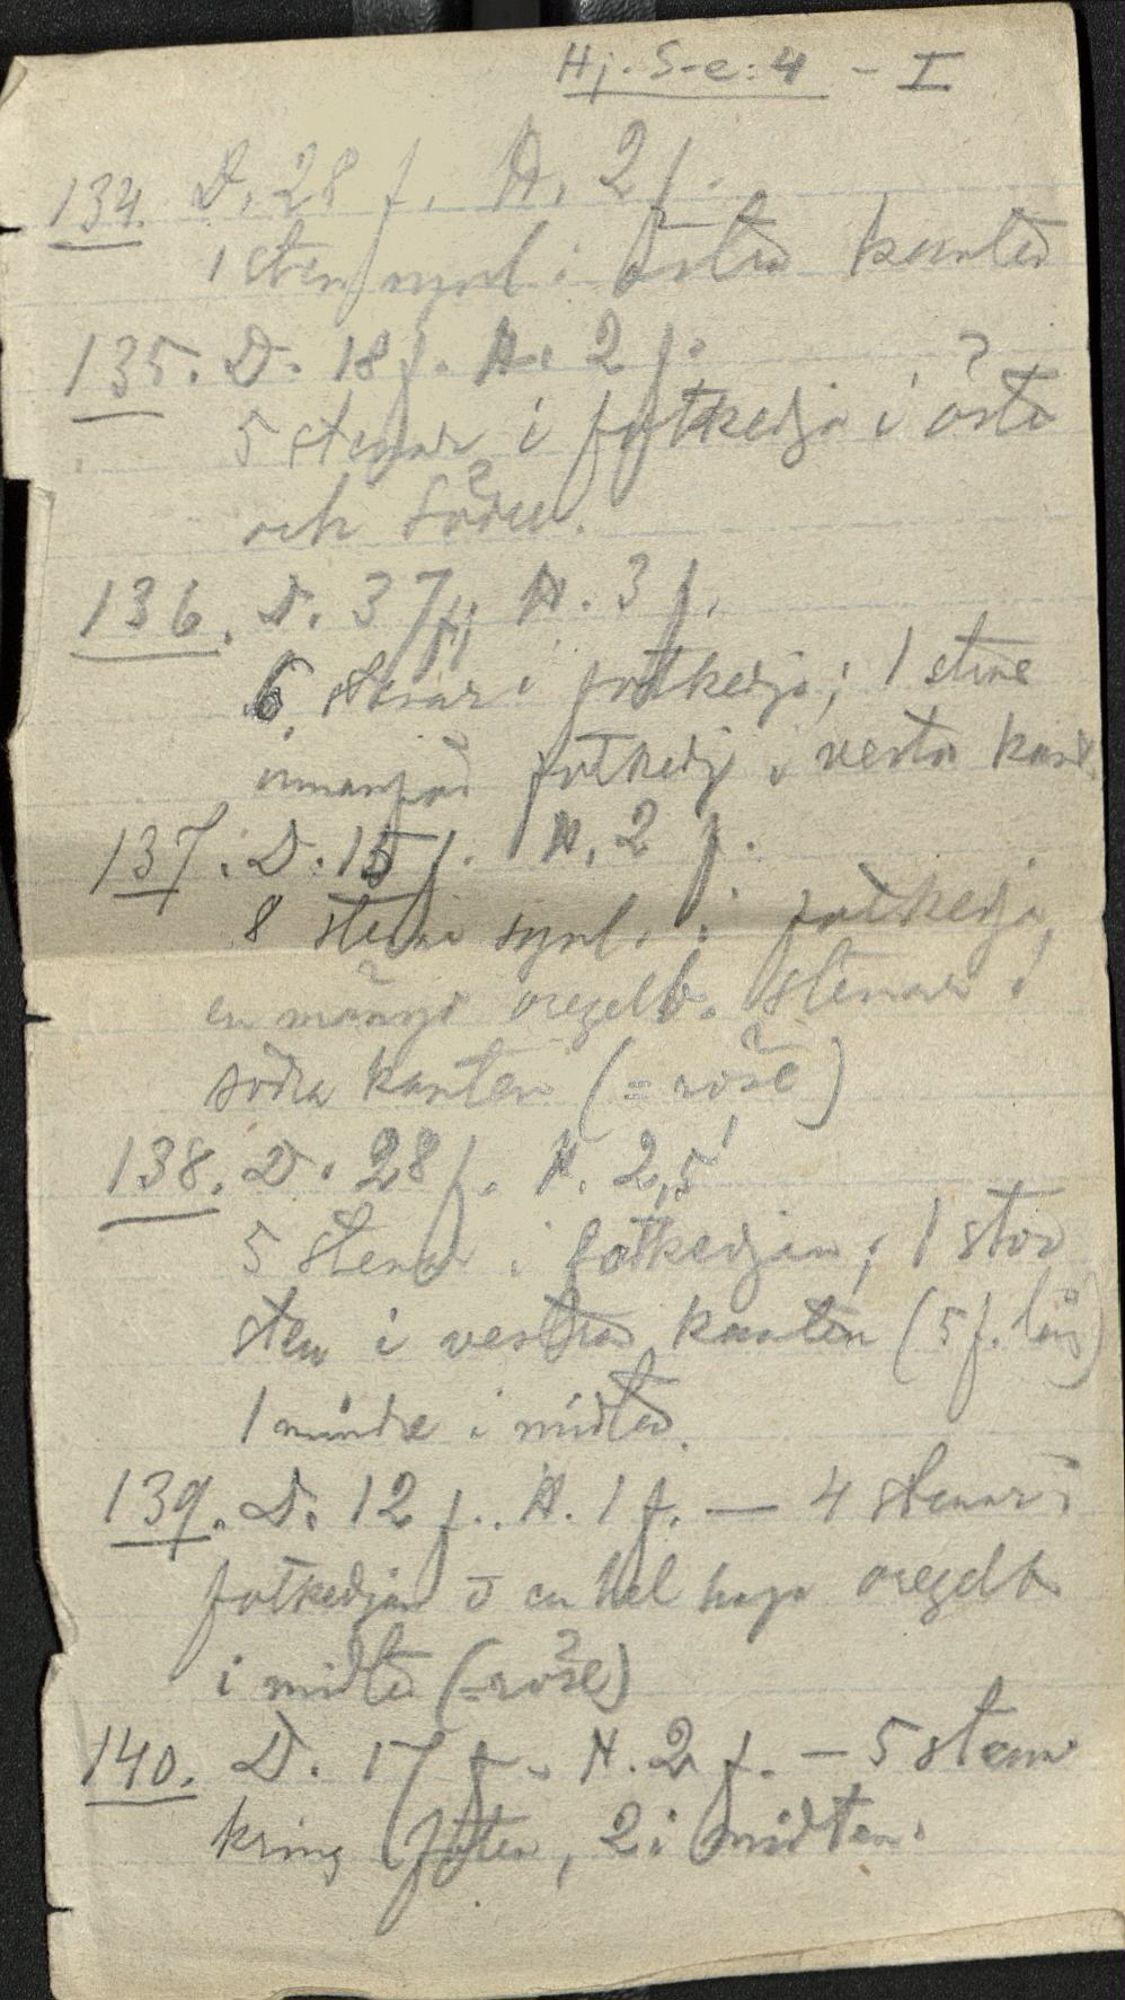 Hj. S-e: 4 - I
134. D. 28 f. H. 2 f.
1 sten synl. i östra kanten
135. D. 18 f. H. 2 f.
5 stenar i fotkedja i östra
och södra.
136. D. 37 f; H. 3 f.
6 stenar i fotkedja; 1 större
innanför fotkedj i vestra kant.
137. D. 15 f. H. 2 f.
8 stenar synl. i fotkedja,
en mängd oregelb. stenar i
södra kanten (= röse)
138. D. 28 f. H. 2,5'
5 stenar i fotkedjan; 1 stor
sten i vestra kanten (5 f. lång)
1 mindre i midten.
139. D. 12 f. H. 1 f. — 4 stenar i
fotkedjan o en hel hop oregelb
i midten (= röse)
140. D. 17 f. H. 2 f. — 5 stenar
kring foten, 2 i midten.